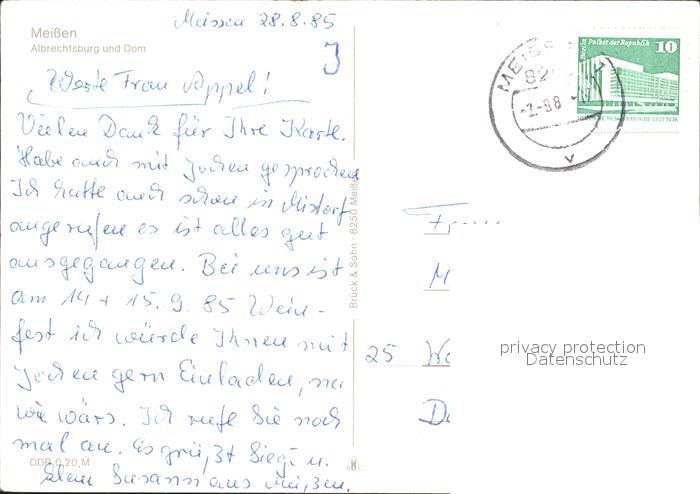 Meissen 28.8.85
Meißen
Albrechtsburg und Dom
J
Werte Frau Appel!
Vielen Dank für Ihre Karte.
Habe auch mit Jochen gesprochen
Ich hatte auch schon in Mistorf
angerufen es ist alles gut
ausgegangen. Bei uns ist
am 14 + 15.9.85 Wein-
fest ich würde Ihnen mit
Jochen gern Einladen, na
wie wärs. Ich rufe Sie noch
mal an. Es grüßt Siegi u.
Susann aus Meißen.
DDR 0,20 M
Brück & Sohn · 8250 Meißen
Berlin Palast der Republik 10
MEISS
82
Fr
M
25 Wa
privacy protection
Datenschutz